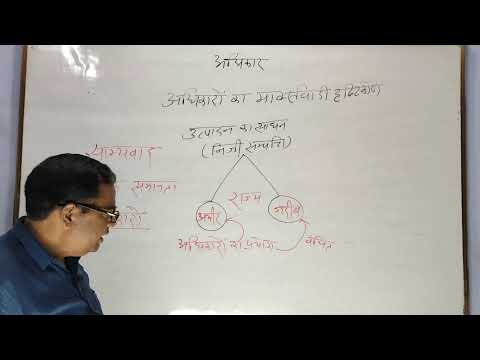 अधिकार
अधिकारों का मार्क्सवादी दृष्टिकोण
उत्पादन का साधन
(निजी सम्पत्ति)
साम्यवाद
समानता
राज्य
अमीर
गरीब
अधिकारों का प्रयोग
वंचित